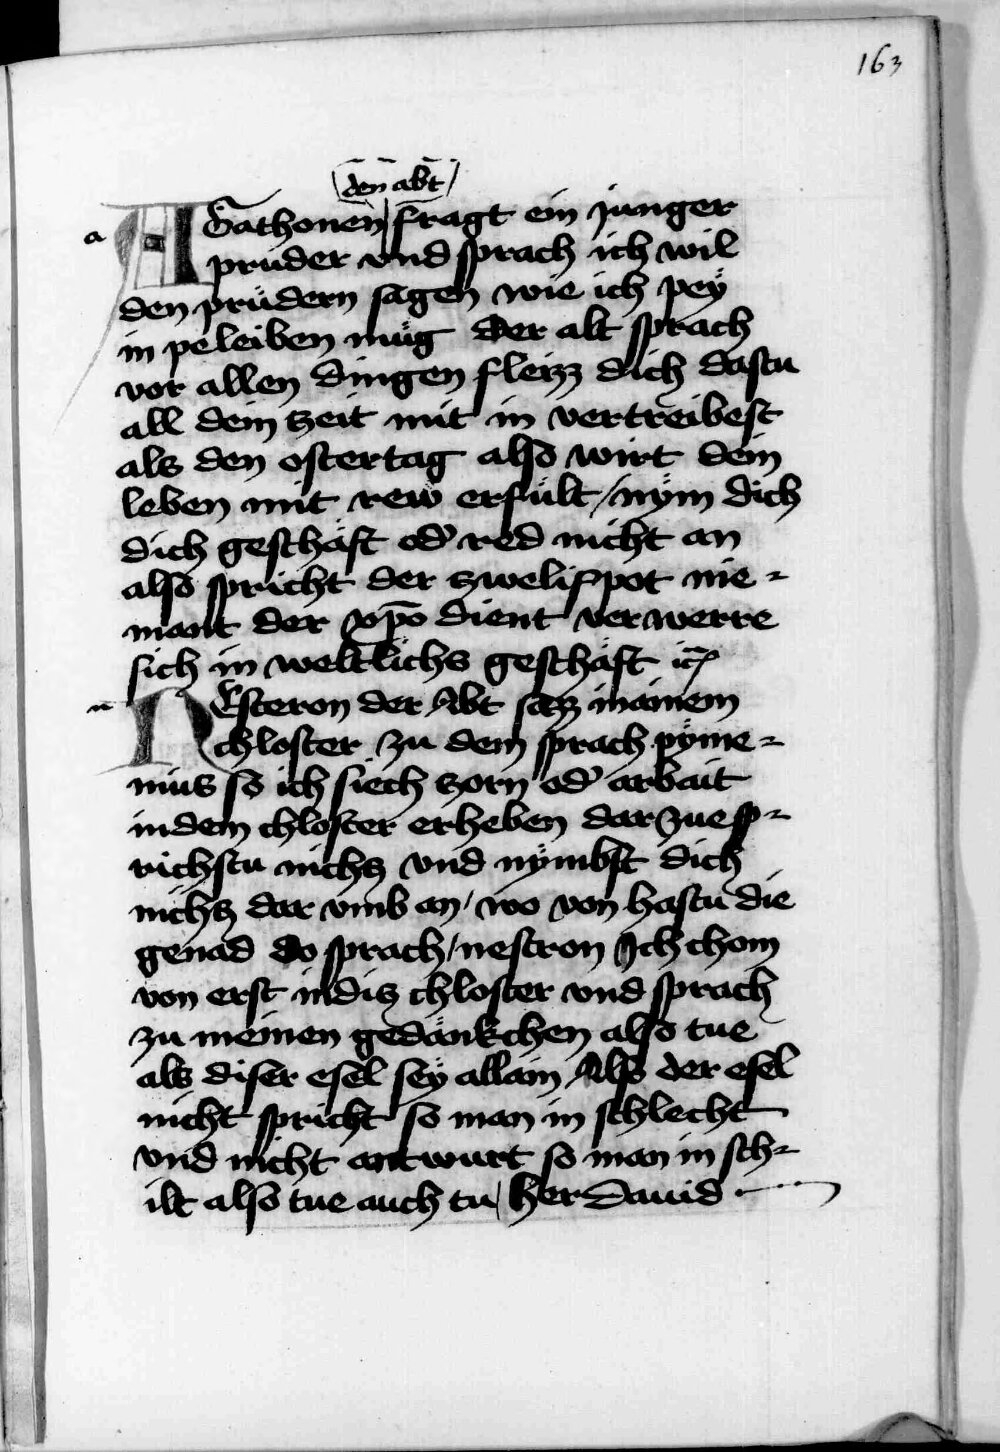 163
den abt
a
AGathonen fragt ein junger
pruder vnd sprach ich wil
den prüdern sagen wie ich peÿ
in peleiben müg Der alt sprach
vor allen dingen fleizz dich dastu
all dein zeit mit in vertreibest
als den ostertag also wirt dein
leben mit rew erfült / nÿm dich
dich geschäft od' red nicht an
also spricht der zwelifpot nie-
mant der xp̄o dient verwerre
sich in weltlichs geschäft
n
NEsteron der Abt sazz in ainem
chloster zu dem sprach pÿme-
nius so ich siech zorn od' arbait
in dem chloster erheben dar zue sp-
richstu nichtz vnd nÿmbst dich
nichtz dar vmb an / wo von hastu die
genad Do sprach / nestron Ich chom
von erst in ditz chloster vnd sprach
zu meinen gedänkchen also tue
als diser esel seÿ allain Also der esel
nicht spricht so man in schlecht
vnd nicht antwurt so man in sch-
ilt also tue auch tu / her dauid